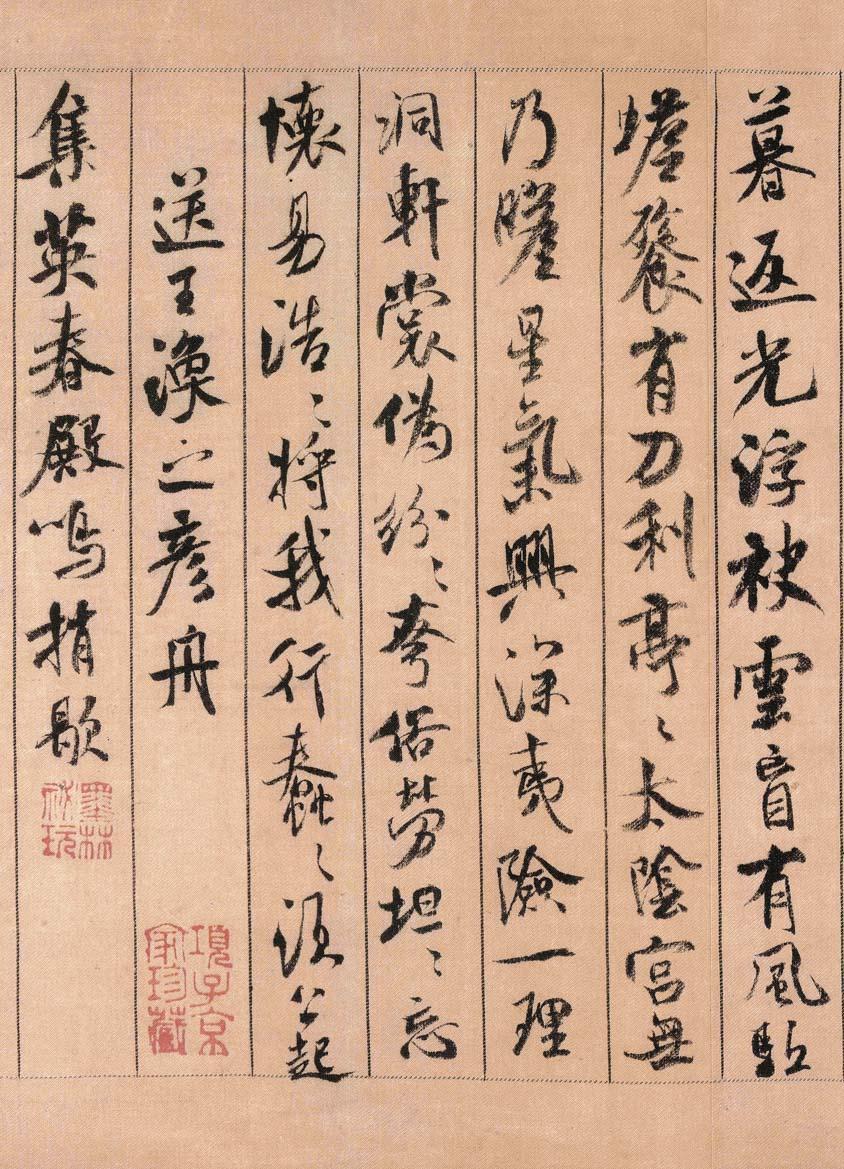 暮返光浮袂雲盲有風駈
蟾餮有刀利亭〻太陰宮無
乃瞻星氣興深夷險一理
洞軒裳偽紛〻夸俗勞坦〻忘
懷易浩〻將我行蠢〻須公起
送王渙之彥舟
集英春殿鳴捎歇
項子京家珍藏
墨林祕玩